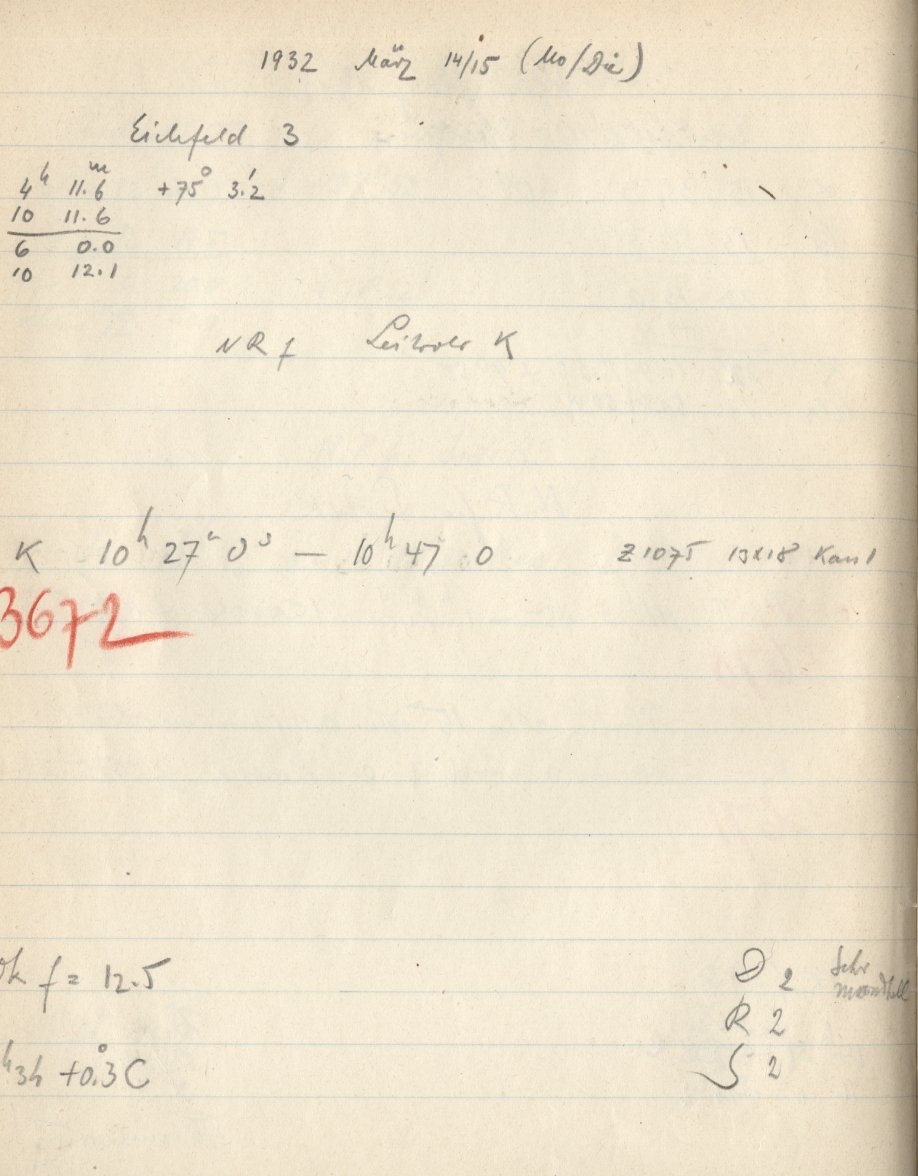 1932 März 14/15 (Mo/Die)
Eichfeld 3
4h 11.6m +75° 3.'2
10 11.6
6 0.0
10 12.1
NR f Leitrohr K
K 10h 27m 0s — 10h 47 0 Z 1075 13x18 Kass 1
3672
Ok f = 12.5
D 2 Sehr mondhell
R 2
S 2
h 34 +0.°3 C